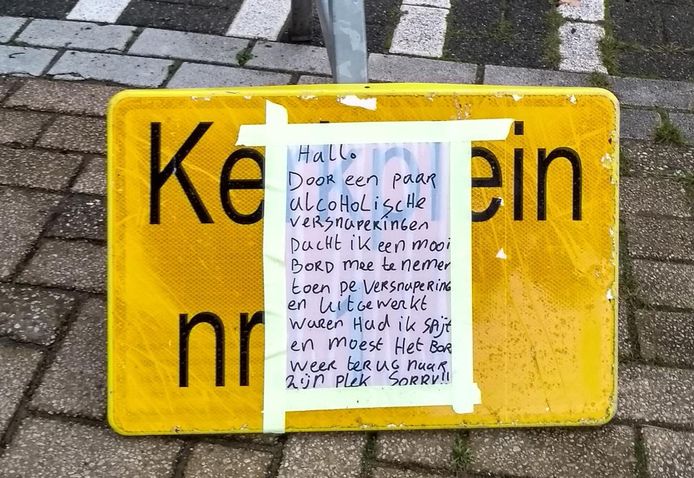 Ke lein
nr
Hallo
Door een paar
alcoholische
versnaperingen
Dacht ik een mooi
Bord mee te nemen
toen De versnapering
en uitgewerkt
waren Had ik spijt
en moest Het Bor
weer terug naar
zijn plek Sorry!!